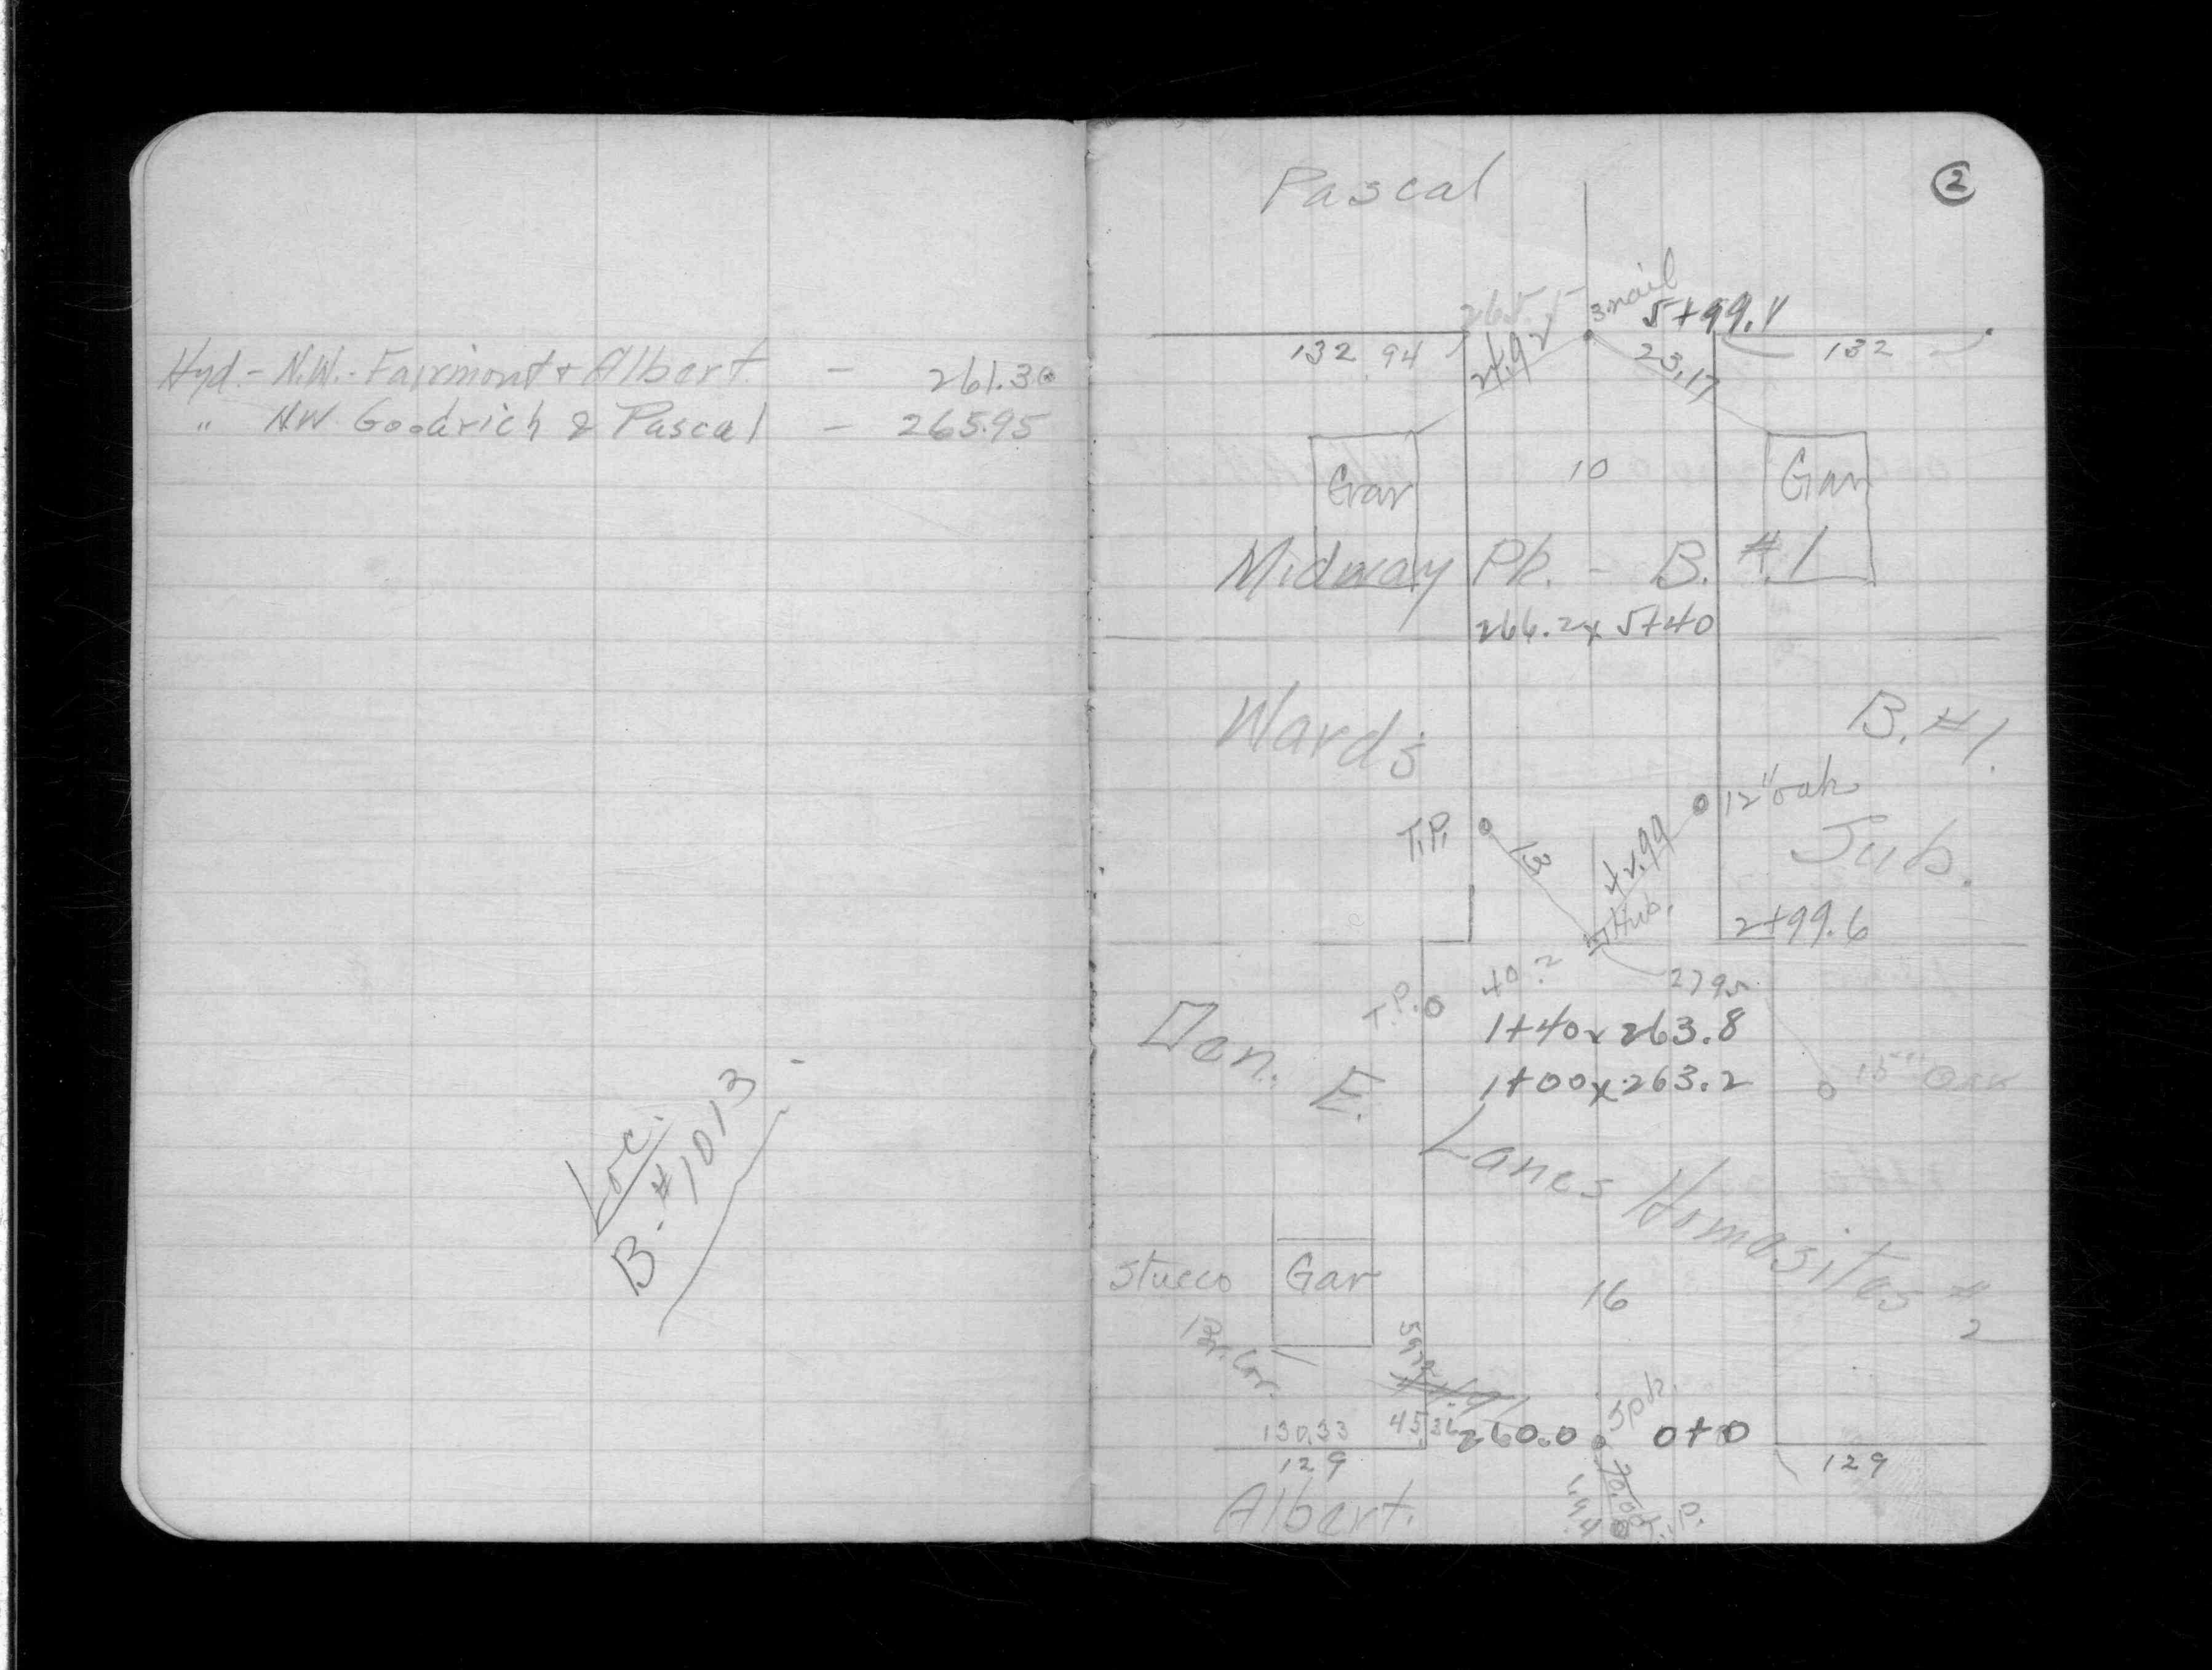 Hyd.- N.W.- Fairmont & Albert. - 261.30
" N.W. Goodrich & Pascal - 265.95
Loc.
B. #1013
2
Pascal
3. nail
265.5
5+99.1
132 94
24.92
23.17
132
Gar
10
Gar
Midway Pk. - B. #1
266.2x 5+40
Wards
B. #1.
12" oak
T.P.
Sub.
42.99
Hub.
2+99.6
40.2
2795
T.P.
1+40x 263.8
Dan. E.
1+00x 263.2
15" Oak
Lanes Homesites #2
Stucco
Gar
16
Spk.
130.33
45.36
260.0
0+0
129
129
70.00
Albert.
T.P.